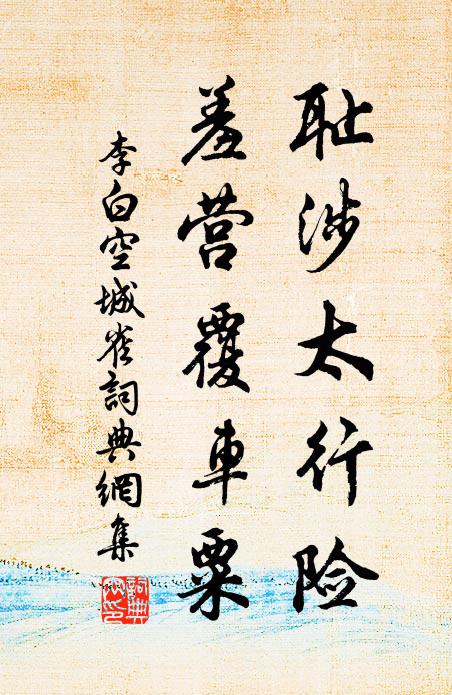 耻涉太行险
羞营覆車粟
李白空城雀詞典網集